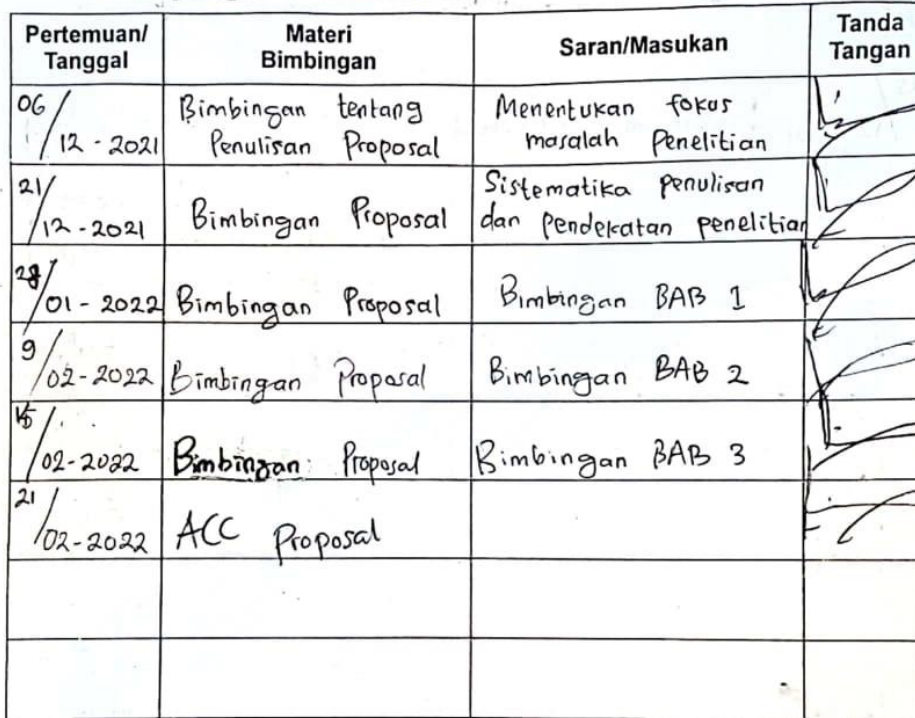 Pertemuan/ Tanggal
Materi Bimbingan
Saran/Masukan
Tanda Tangan
06/12-2021
Bimbingan tentang
Penulisan Proposal
Menentukan fokus
masalah Penelitian
21/12-2021
Bimbingan Proposal
Sistematika Penulisan
dan Pendekatan penelitian
01-2022
Bimbingan Proposal
Bimbingan BAB 1
9/02-2022
Bimbingan Proposal
Bimbingan BAB 2
15/02-2022
Bimbingan Proposal
Bimbingan BAB 3
21/02-2022
ACC Proposal